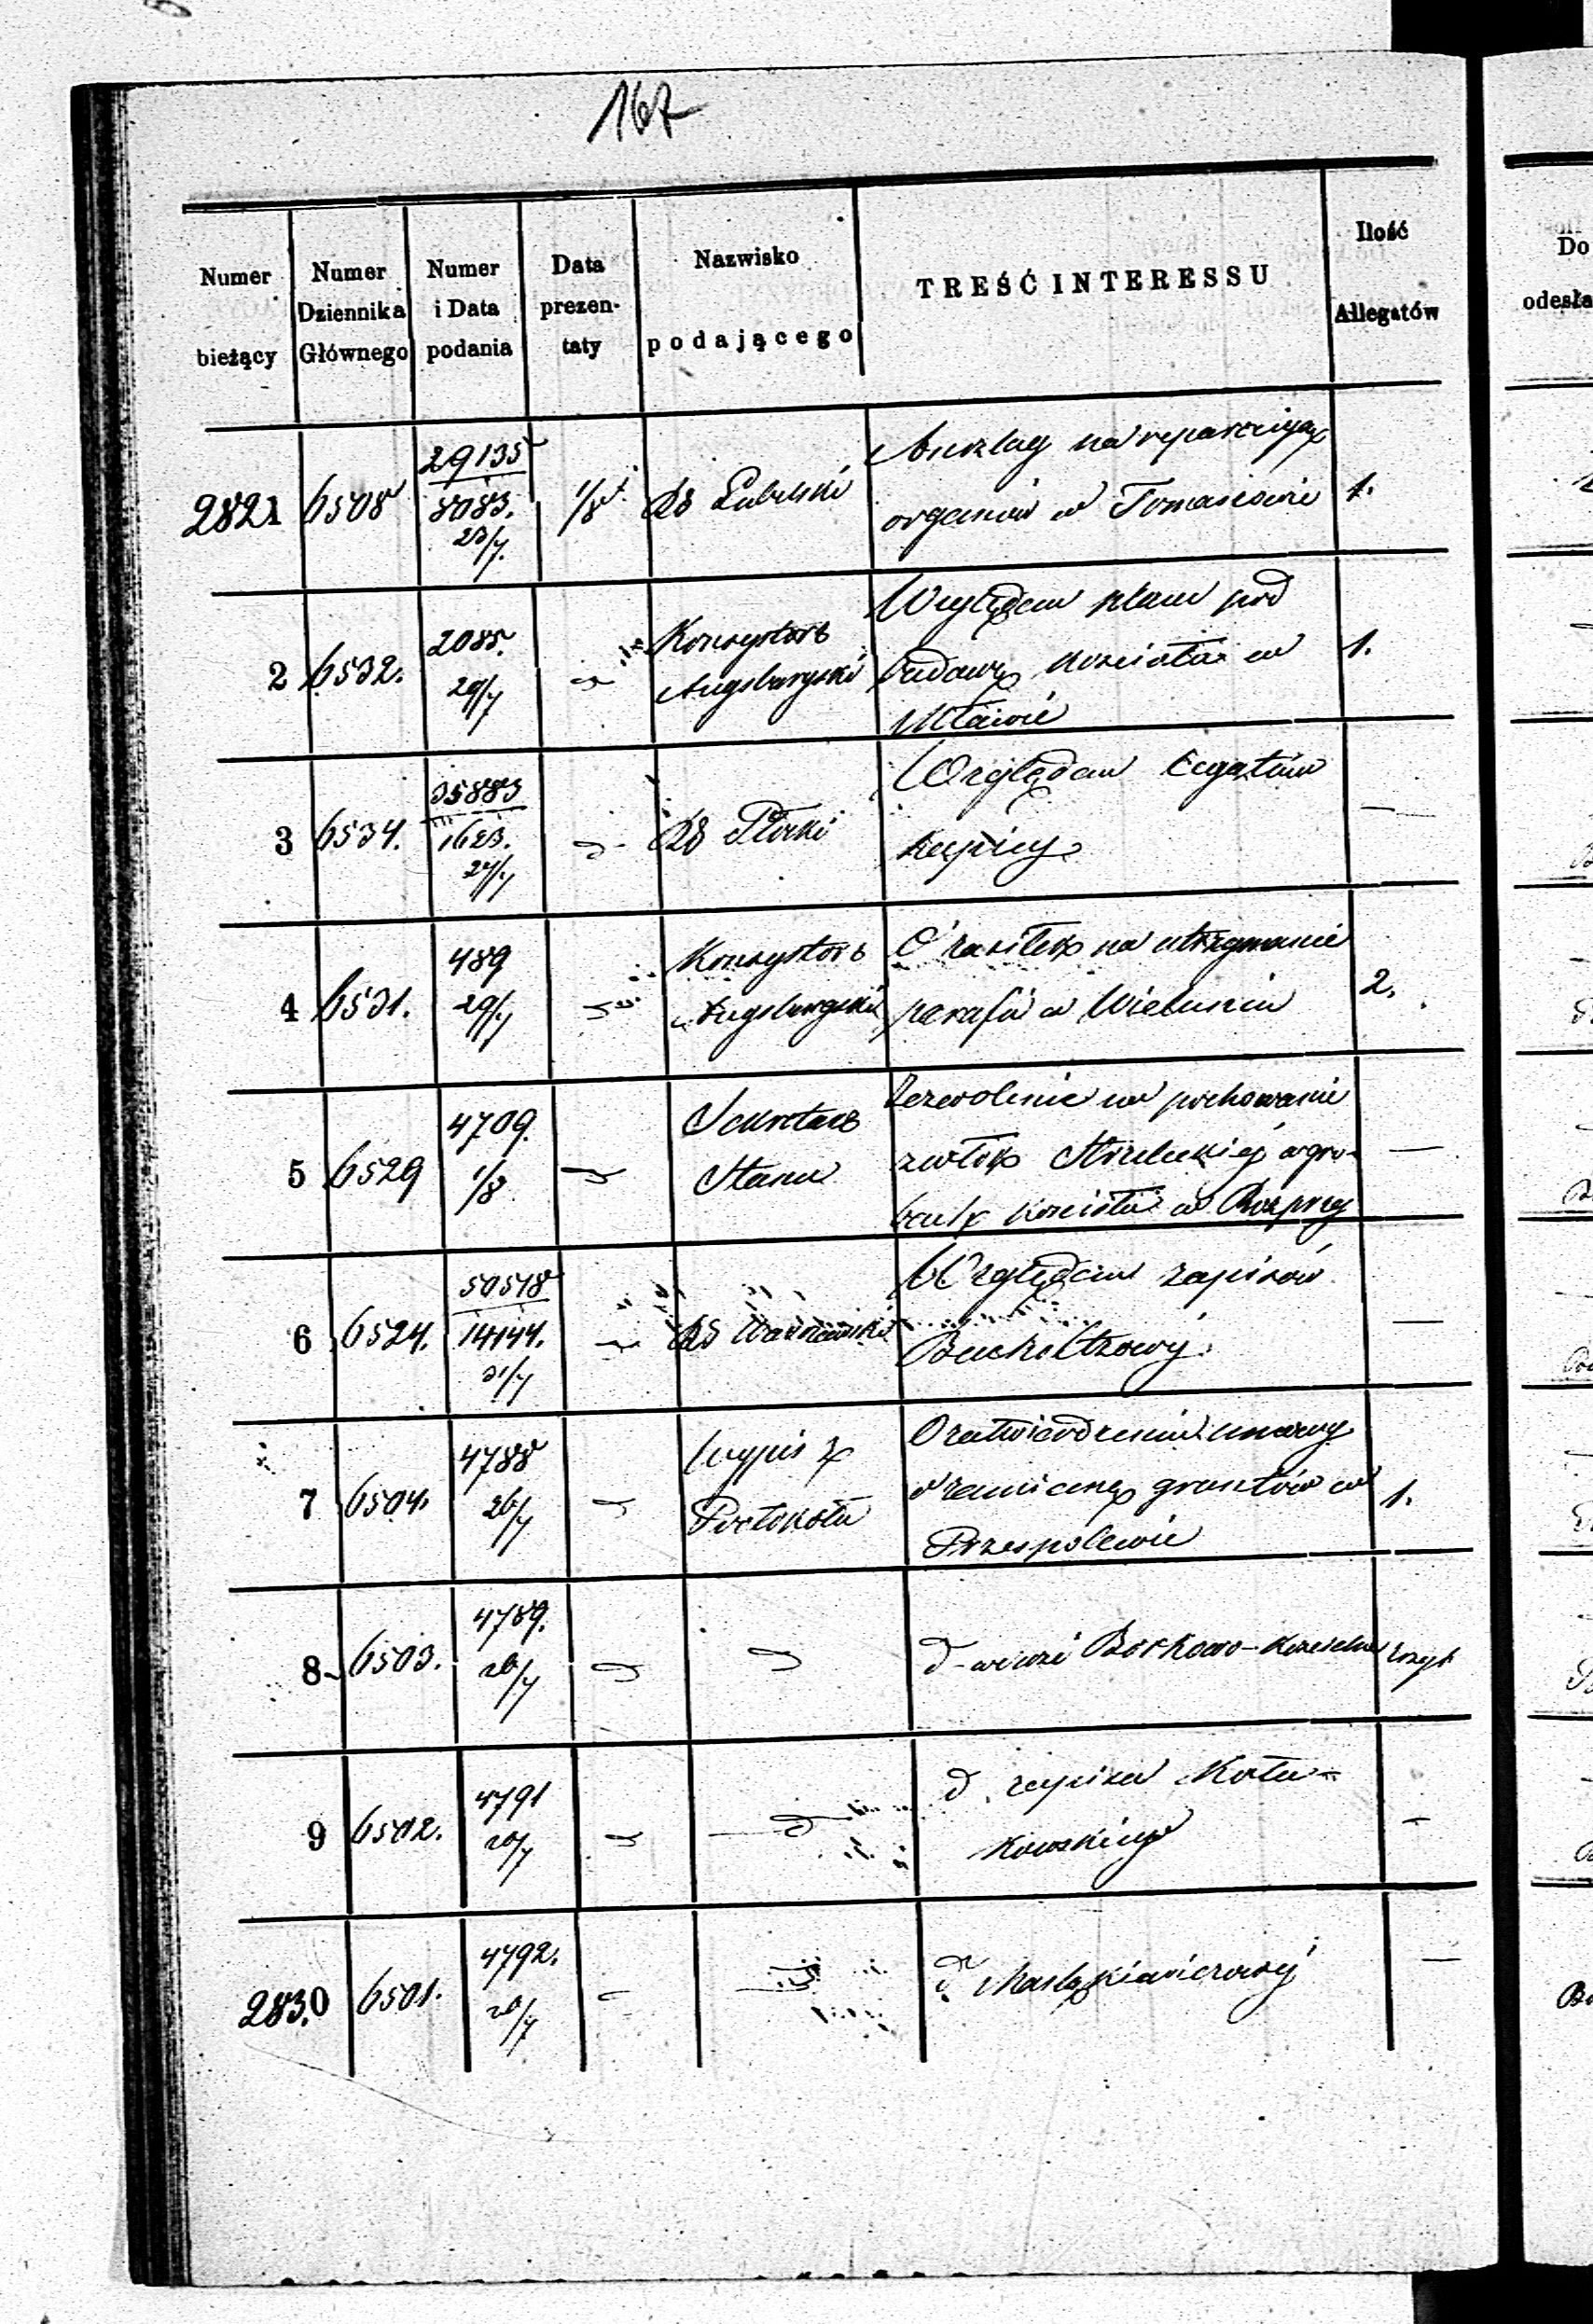 167
Numer bieżący | Numer Dziennika Głównego | Numer i Data podania | Data prezen- taty | Nazwisko podającego | TREŚĆ INTERESSU | Ilość Allegatów
2821 | 6508 | 29135 / 8083. 23/7. | 1/8 | RG Lubelski | Anszlag na reparacyją
organów w Tomaszowie | 1.
2 | 6532. | 2085. 29/7 | d | Konsystorz Augsburgski | Względem planu pod
budowę kościoła w
Mławie | 1.
3 | 6534. | 35883 / 1623. 27/7 | d | RG Płocki | Względem Legatów
Kępińcy | —
4 | 6531. | 489 29/7 | d | Konsystorz Augsburgski | O zasiłek na utrzymanie
parafii w Wieluniu | 2.
5 | 6529 | 4709. 1/8 | d | Sekretarz Stanu | Zezwolenie na pochowanie
zwłok w gro-
bach kościoła w Rozprzy | —
6 | 6524. | 50518 / 14144. 31/7 | d | RG Warszawski | Względem zapisów
Bucholtzowy. | —
7 | 6504. | 4788 26/7 | d | Wypis z Protokołu | O zatwierdzeniu umowy
o zamianę gruntów w
Przespolewie | 1.
8 | 6503. | 4789. 26/7 | d | d | d - we wsi Borkowo - | Zszyt
9 | 6502. | 4791 26/7 | d | d | d. zapisu Kołu-
kowskiego | —
2830 | 6501. | 4792. 26/7 | d | d | d | —
Do
odesła